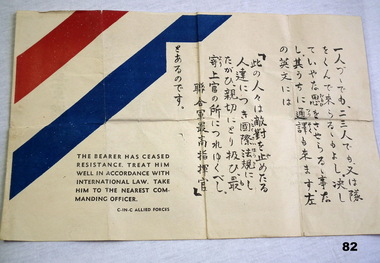 一人づゝでも、二三人でも、又は隊
をくんで來らるゝもよし、決し
ていやな思をさせらるゝ事な
し、其うちに通譯も来ます左
の英文には
「此の人々は敵對を止めたる
人達につき國際法規にし
たがひ親切にとり扱ひ、最
寄上官の所につれゆくべし、
聯合軍最高指揮官」
とあるのです。
THE BEARER HAS CEASED
RESISTANCE. TREAT HIM
WELL IN ACCORDANCE WITH
INTERNATIONAL LAW. TAKE
HIM TO THE NEAREST COM-
MANDING OFFICER.
C-IN-C ALLIED FORCES
82